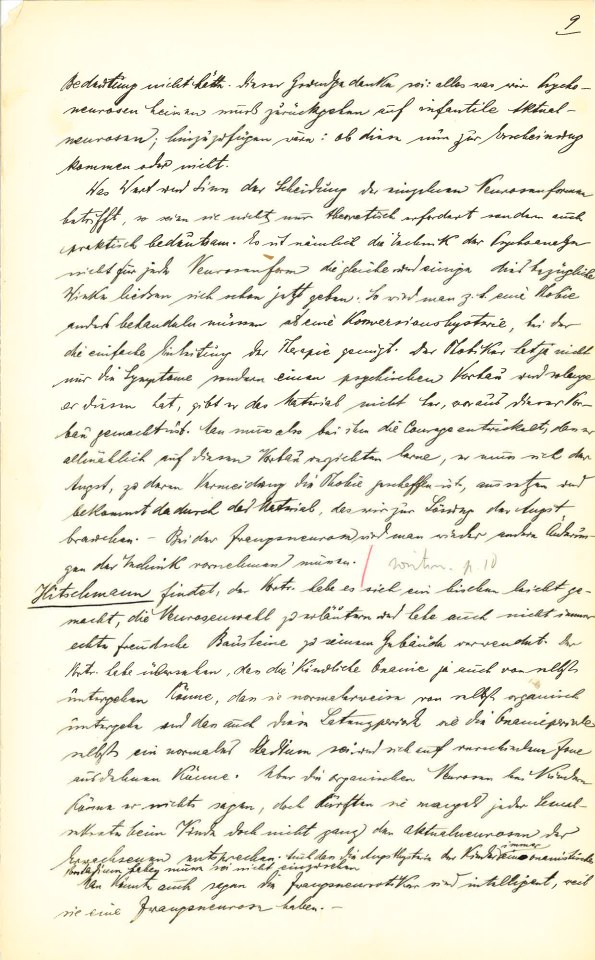 9
Bedeutung nicht hätte. Dieser Grundgedanke sei: alles was wir Psycho-
neurosen heissen muss zurückgehen auf infantile Aktual-
neurosen; hinzuzufügen wäre: ob diese nun zur Erscheinung
kommen oder nicht.
Was Wert und Sinn der Scheidung der einzelnen Neurosenformen
betrifft, so seien sie nicht nur theoretisch erfordert sondern auch
praktisch bedeutsam. Es ist nämlich die Technik der Psychoanalyse
nicht für jede Neurosenform die gleiche und einige diesbezügliche
Winke liessen sich schon jetzt geben. So wird man z.b. eine Phobie
anders behandeln müssen als eine Konversionshysterie, bei der
die einfache Einleitung der Therapie genügt. Der Phobiker hat ja nicht
nur die Symptome sondern einen psychischen Vorbau und solange
er diesen hat, gibt er das Material nicht her, woraus dieser Vor-
bau gemacht ist. Man muss also bei ihm die Courage entwickeln, dass er
allmählich auf diesen Vorbau verzichten lerne, er muss sich der
Angst, zu deren Vermeidung die Phobie geschaffen ist, aussetzen und
bekommt dadurch das Material, das wir zur Lösung der Angst
brauchen. — Bei der Zwangsneurose wird man wieder andere Änderun-
gen der Technik vornehmen müssen. / weiter p. 10
Hitschmann findet, der Vortr. habe es sich ein bischen leicht ge-
macht, die Neurosenwahl zu erläutern und habe auch nicht immer
echte freudsche Bausteine zu seinem Gebäude verwendet. Der
Vortr. habe übersehen, dass die kindliche Onanie ja auch von selbst
untergehen könne, dass sie normalerweise von selbst organisch
untergehe und dass auch diese Latenzperiode wie die Onanieperiode
selbst ein normales Stadium sei und sich auf verschiedene Zone
ausdehnen könne. Über die organischen Neurosen bei Kindern
könne er nichts sagen, doch dürften sie mangels jeder Sexual-
sekrete beim Kinde doch nicht ganz den Aktualneurosen der
Erwachsenen entsprechen. Auch dass die Angsthysterie der Kinder immer ein onanistisches
Vorstadium haben muss sei nicht einzusehen
Man könnte auch sagen die Zwangsneurotiker sind intelligent, weil
sie eine Zwangsneurose haben. —